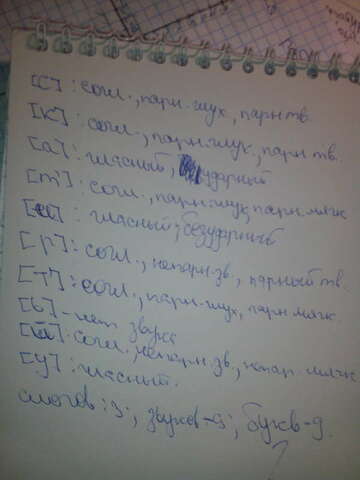 [с]: согл., парн. глух, парн тв.
[к]: согл., парн. глух., парн тв.
[а]: гласный, ударный
[т']: согл., парн. глух, парн. мягк
гласный, безударный
[р]: согл., непарн. зв., парный тв.
[т']: согл., парн. глух, парн. мягк.
[ь] - нет звука
[й]: согл. непарн. зв., непар. мягк
[у]: гласный.
слогов: 3;, звуков - 9; букв - 9.